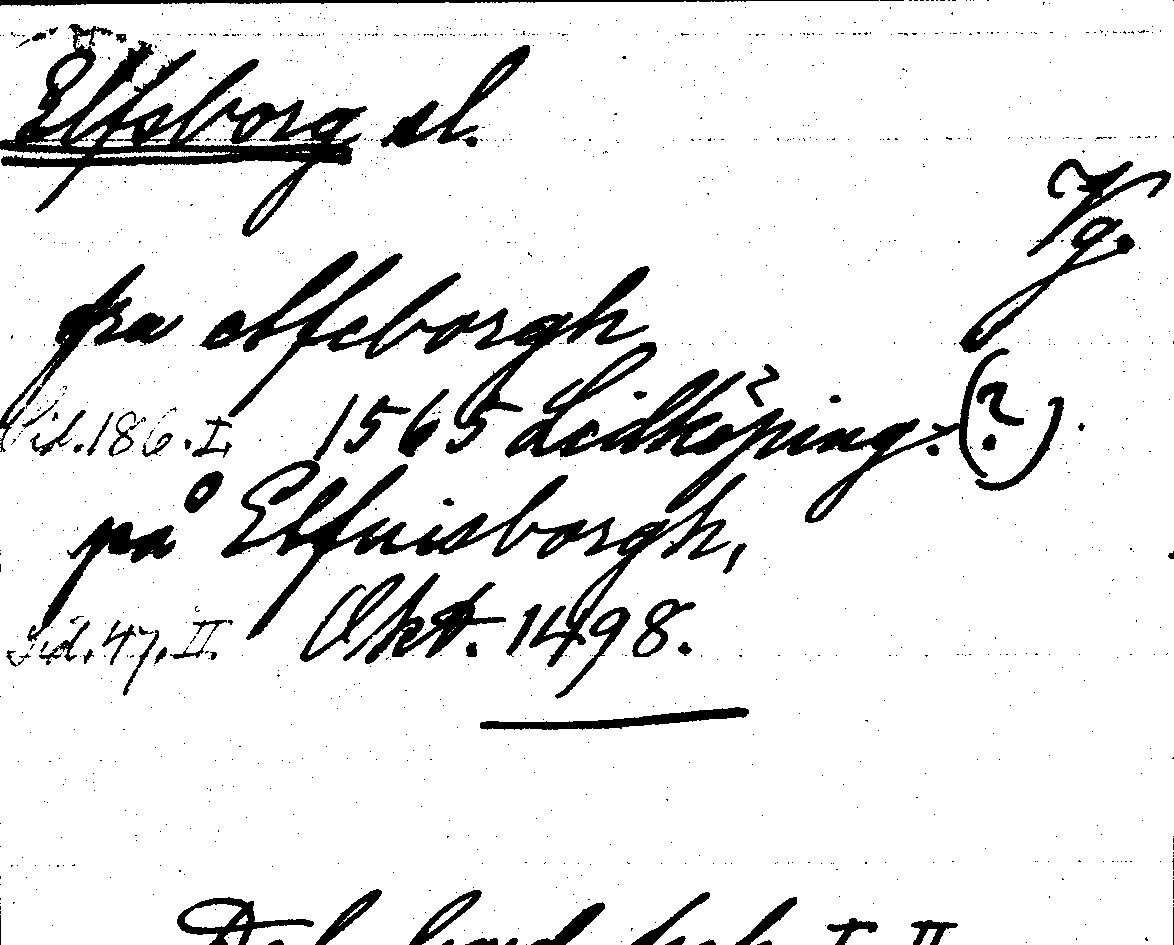 Elfsborg sl.
Vg.
fra elfeborgh
Sid. 186. I. 1565 Lidköping. (?).
på Elfuisborgh,
Sid. 47. II. Okt. 1498.
I II